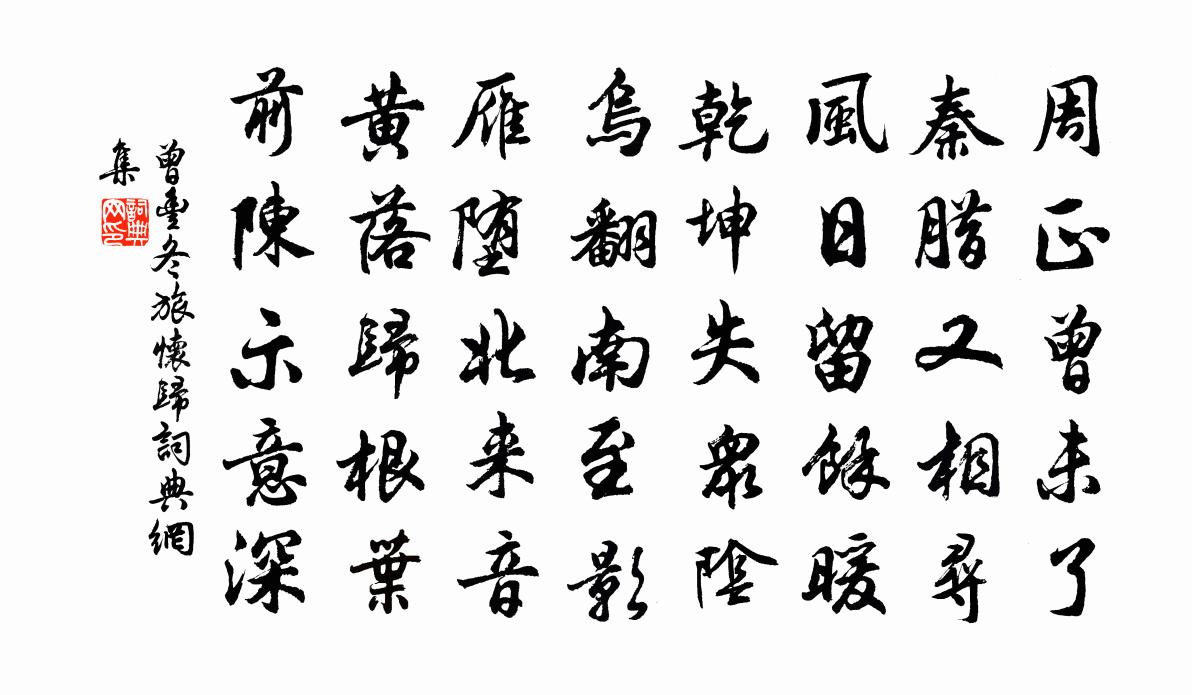 周正曾未了
秦腊又相尋
風日留餘暖
乾坤失衆陰
烏翻南至影
雁堕北来音
黄落歸根葉
前陳示意深
曾豐冬旅懷歸詞典網
集
詞典
网印